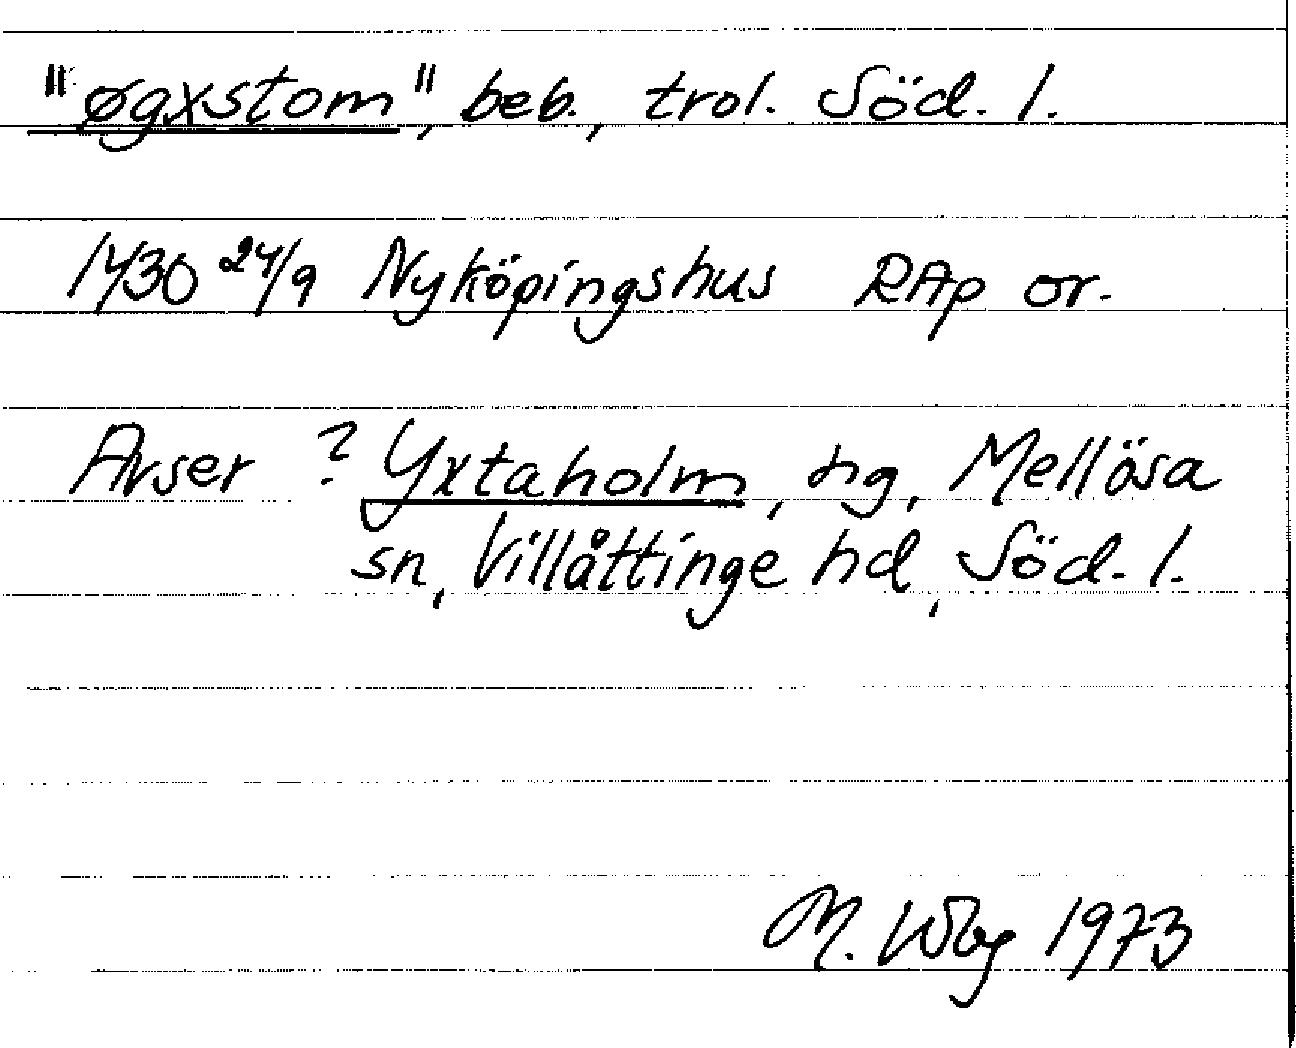 "øgxstom", beb., trol. Söd. l.
1430 24/9 Nyköpingshus RAp or.
Avser ? Yxtaholm, hg, Mellösa
sn, Villåttinge hd, Söd. l.
M. Wbg 1973